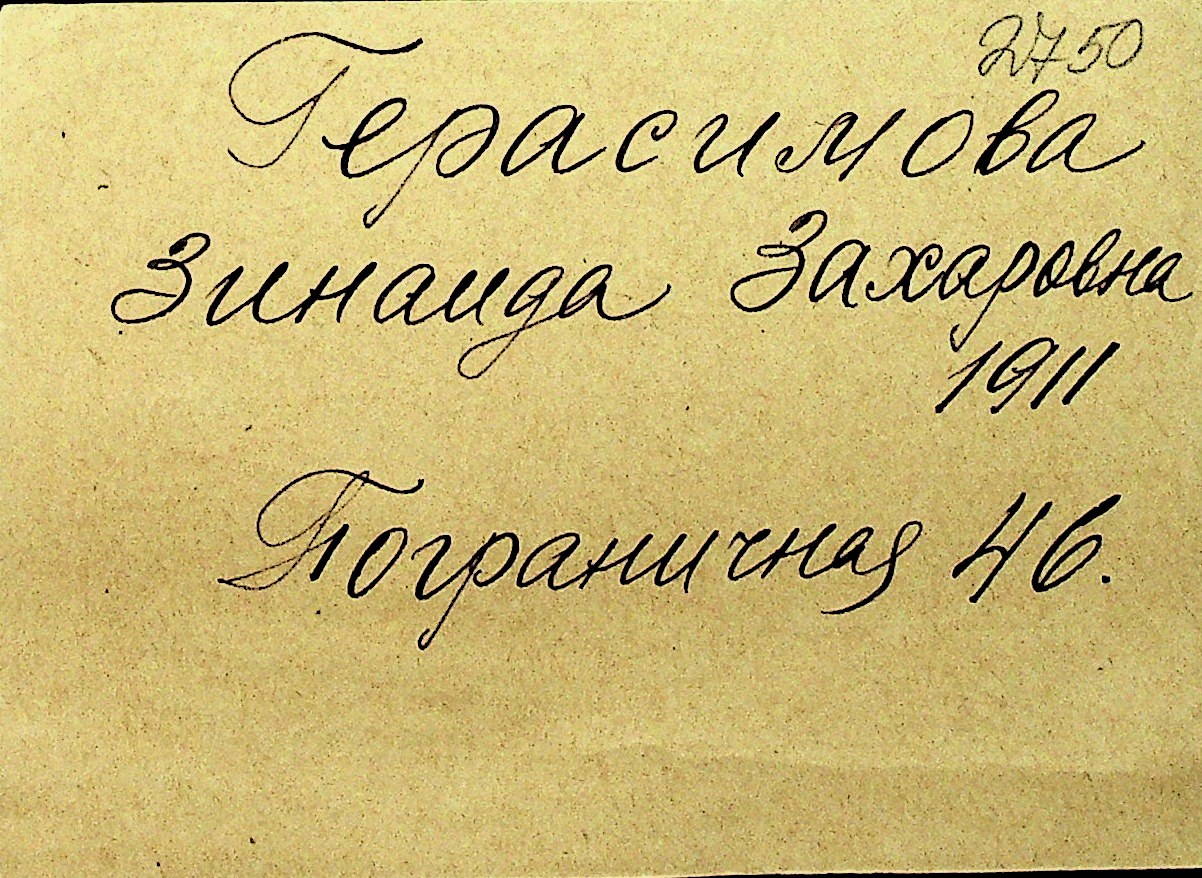 2750
Герасимова
Зинаида Захаровна
1911
Пограничная 46.